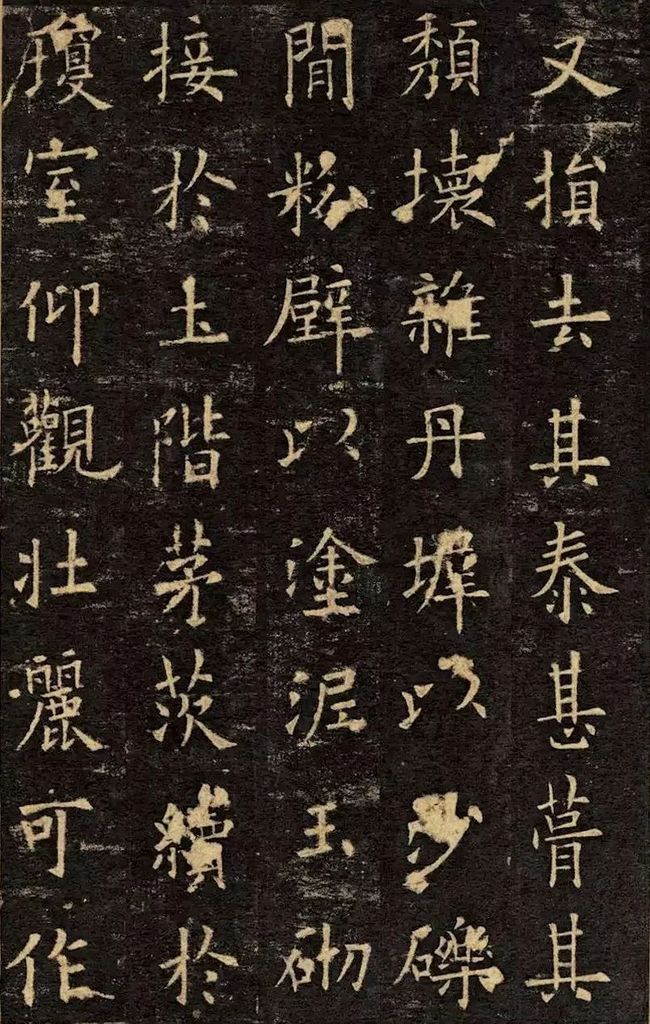 又損去其泰甚葺其
頹壞雜丹墀以沙礫
間粉壁以塗泥玉砌
接於土階茅茨續於
瓊室仰觀壯麗可作